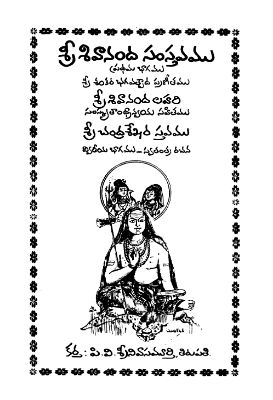 శ్రీ శివానంద సంస్తవము
(ప్రథమ భాగము)
శ్రీ శంకర భగవత్పాద ప్రణీతము
శ్రీ శివానంద లహరి
సంస్కృతాంధ్రద్వయ సహితము
శ్రీ చంద్రశేఖర స్తవము
ద్వితీయ భాగము - స్వతంత్ర రచన
కర్త : పి. వి. శ్రీనివాసమూర్తి, తిరుపతి.